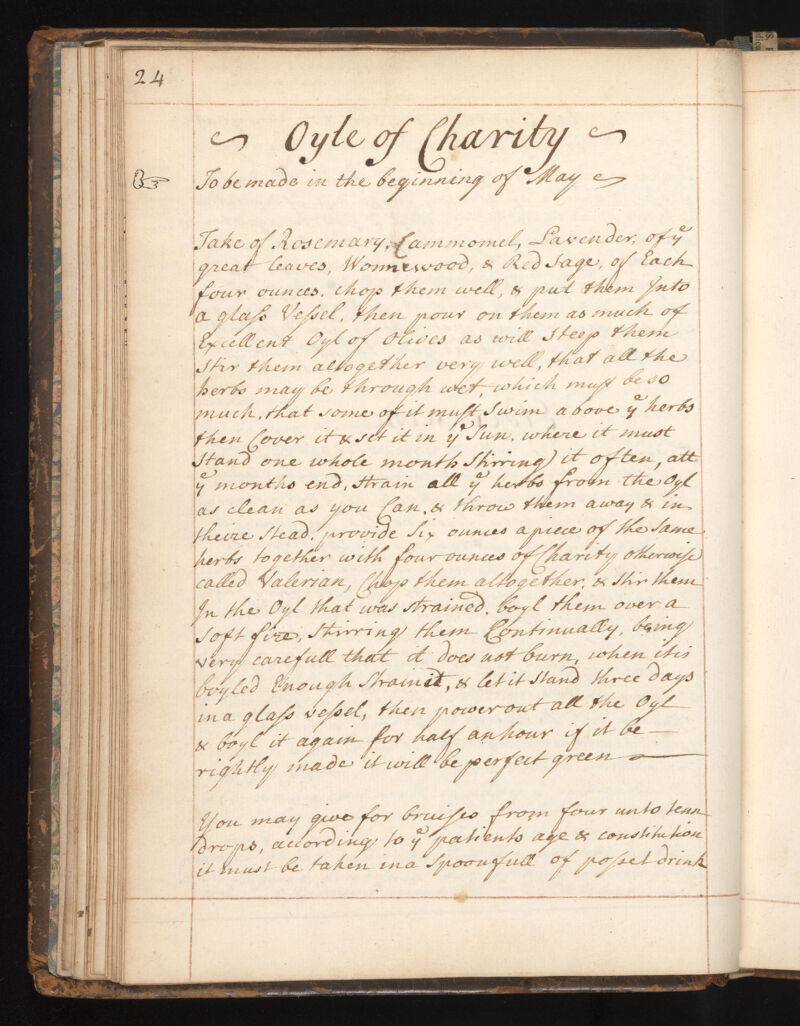 24
Oyle of Charity
To be made in the beginning of May
Take of Rosemary, Cammomel, Lavender, of yͤ
great leaves, Wormewood, & Red Sage, of Each
four ounces. chop them well, & put them Into
a glass Vessel, then pour on them as much of
Excellent Oyl of Olives as will steep them
Stir them altogether very well, that all the
herbs may be through wet, which must be so
much, that some of it must swim above yͤ herbs
then Cover it & set it in yͤ Sun, where it must
Stand one whole month Stirring it often, att
yͤ months end, strain all yͤ herbs from the Oyl
as clean as you Can, & throw them away & in
theire stead, provide Six ounces apiece of the same
herbs together with four ounces of Charity otherwise
called Valerian, Chop them altogether, & stir them
In the Oyl that was strained, boyl them over a
soft fire, Stirring them Continually, being
very carefull that it does not burn, when it is
boyled Enough strain it, & let it stand three days
in a glass vessel, then power out all the Oyl
& boyl it again for half an hour if it be
rightly made it will be perfect green
You may give for bruises from four unto tenn
drops, according to yͤ patients age & constitution
it must be taken in a Spoonfull of posset drink